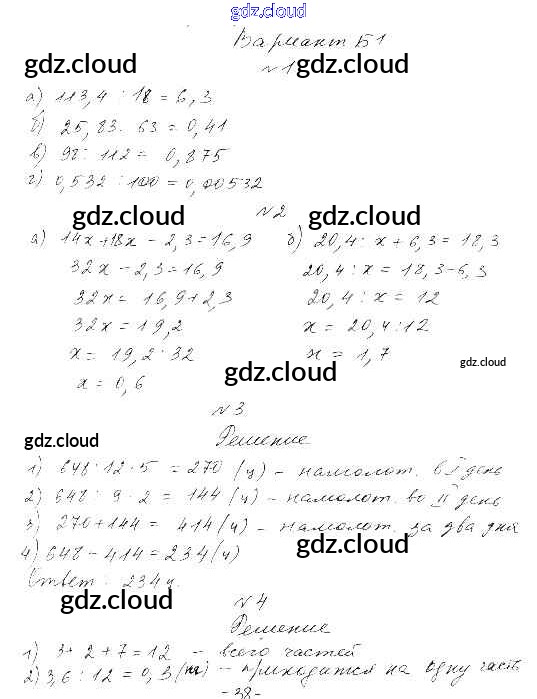 gdz.cloud
Вариант Б1
gdz.cloud №1 gdz.cloud
а) 113,4 : 18 = 6,3
б) 25,83 : 63 = 0,41
в) 98 : 112 = 0,875
г) 0,532 : 100 = 0,00532
gdz.cloud №2 gdz.cloud
а) 14х+18х - 2,3 = 16,9
32х - 2,3 = 16,9
32х = 16,9+2,3
32х = 19,2
х = 19,2 : 32
х = 0,6
б) 20,4 : х + 6,3 = 18,3
20,4 : х = 18,3-6,3
20,4 : х = 12
х = 20,4 : 12
х = 1,7
gdz.cloud gdz.cloud
№3
gdz.cloud Решение
1) 648 : 12 · 5 = 270 (ц) - намолот. в I день
2) 648 : 9 · 2 = 144 (ц) - намолот. во II день
3) 270+144 = 414 (ц) - намолот. за два дня
4) 648 - 414 = 234 (ц) gdz.cloud
Ответ: 234 ц.
gdz.cloud №4 gdz.cloud
Решение
1) 3+2+7 = 12 - всего частей
2) 3,6 : 12 = 0,3 (м) - приходится на одну часть
-38-